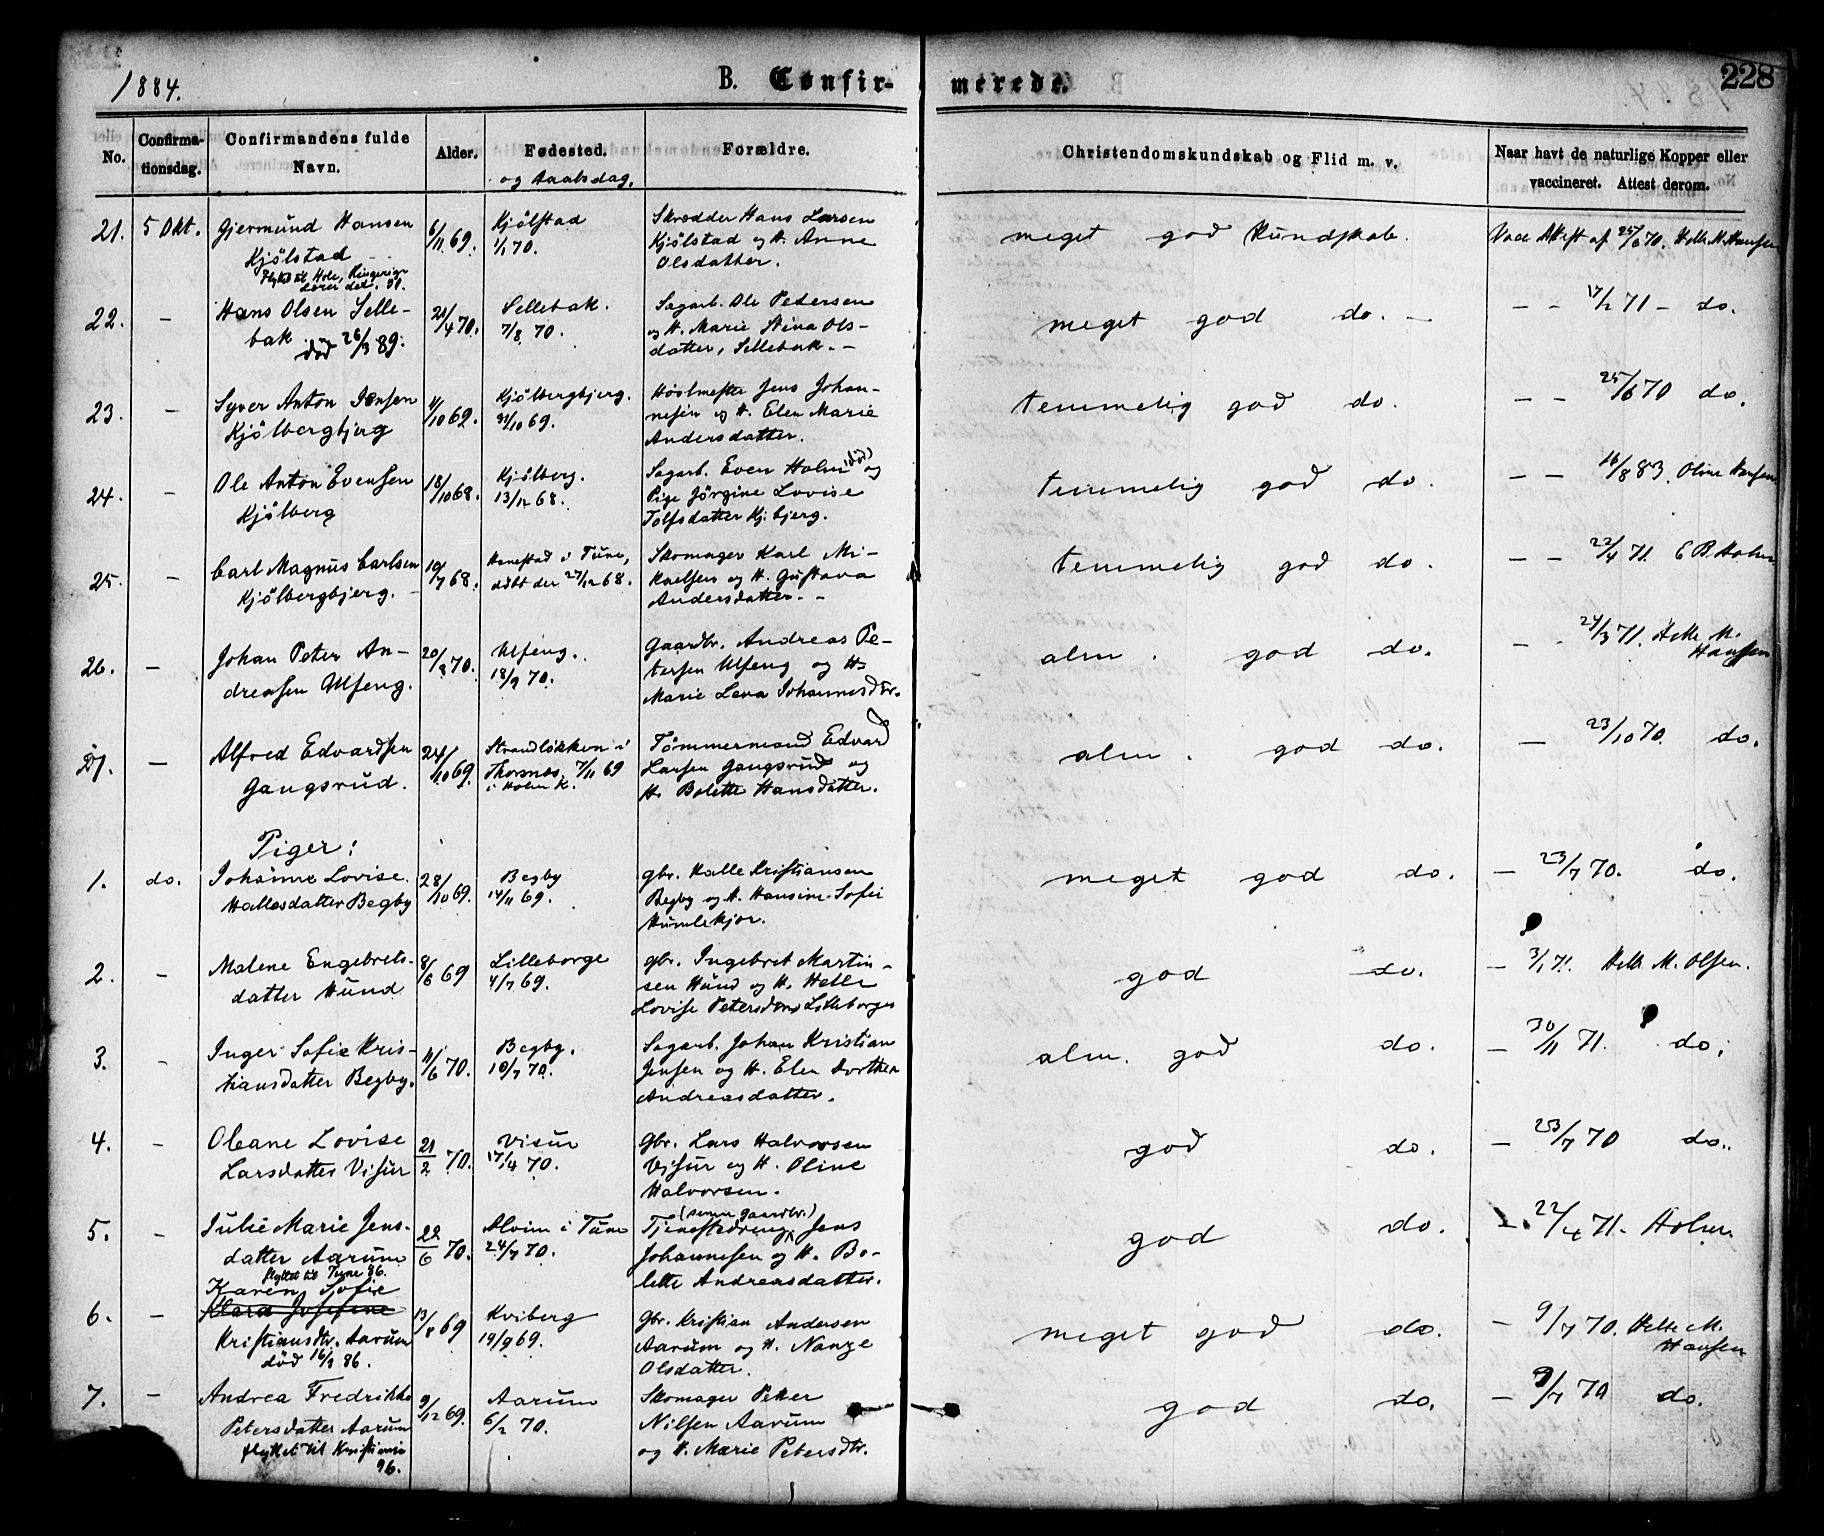 1884.
B. Confir-
merede.
228
No.
Confirma-
tionsdag.
Confirmandens fulde
Navn.
Alder.
Fødested.
og Daabsdag.
Forældre.
Christendomskundskab og Flid m. v.
Naar havt de naturlige Kopper eller
vaccineret. Attest derom.
21. 5 Okt. Gjermund Hansen
Kjölstad
flyttet til Hole, Ringerige
6/11 69.
Kjölstad
1/1 70.
Skrædder Hans Larsen
Kjölstad og H. Anne
Olsdatter.
meget god Kundskab.
Vacc. Attest af 25/6 70. Helle M. Hansen
22. – Hans Olsen Selle-
bak
död 26/3 89.
21/4 70.
Sellebak.
7/8 70.
Sagarb. Ole Pedersen
og H. Marie Stina Ols-
datter, Sellebak. –
meget god do. –
– – 17/2 71 – do.
23. – Syver Anton Jensen
Kjölbergbjerg
11/10 69.
Kjölbergbjerg.
31/10 69.
Høvlmester Jens Johan-
nesen og H. Elen Marie
Andersdatter.
temmelig god do.
– – 25/6 70 do.
24. – Ole Anton Evensen
Kjölberg
18/10 68.
Kjölberg.
13/12 68.
Sagarb. Even Holm (död) og
Pige Jörgine Lovise
Tolfsdatter Kj. bjerg.
temmelig god do.
– – 16/8 83. Oline Hansen
25. – Carl Magnus Carlsen
Kjölbergbjerg. –
10/7 68.
i Tune,
döbt der 27/12 68.
Skomager Karl Mi-
kaelsen og H. Gustava
Andersdatter. –
temmelig god do.
– – 22/4 71. C B. Holm
26. – Johan Peter An-
dreasen Ulfeng.
20/8 70.
Ulfeng.
18/9 70.
Gaardbr. Andreas Pe-
tersen Ulfeng og H.
Marie Lena Johannesdtr.
alm. god do.
– 24/3 71. Helle M.
Hansen
27. – Alfred Edvardsen
Gangsrud.
24/10 69.
Strandlökken i
Thorsnæs 7/11 69
i Holm K.
Tömmermand Edvard
Larsen Gangsrud og
H. Bolette Hansdatter.
alm. god do.
– 23/10 70. do.
Piger:
1. do. Johanne Lovise
Hallesdatter Begby
28/10 69.
Begby
14/11 69.
gbr. Halle Kristiansen
Begby og H. Hansine Sofie
Humlekjær.
meget god do.
– 23/7 70. do.
2. – Malene Engebrets-
datter Hund
8/6 69
Lilleborge
4/7 69.
gbr. Ingebret Martin-
sen Hund og H. Helle
Lovise Petersdtr. Lilleborge
god do.
– 3/1 71. Helle M. Olsen.
3. – Inger Sofie Kris-
tiansdatter Begby.
11/6 70.
Begby.
10/7 70.
Sagarb. Johan Kristian
Jensen og H. Elen Dorthea
Andreasdatter.
alm. god do.
– 30/11 71. do.
4. – Oleane Lovise
Larsdatter Visur
21/2 70.
Visur
17/4 70.
Gbr. Lars Halvorsen
Visur og H. Oline
Halvorsen.
god do.
– 23/7 70 do.
5. – Julie Marie Jens-
datter Aarum
flyttet til Tune 86.
22/6 70.
Alvim i Tune
24/7 70.
(senere gaardbr.)
Tjenestedreng Jens
Johannesen og H. Bo-
lette Andreasdatter.
god do.
– 22/4 71. Holm.
6. – Karen Sofie
Klara Josefine
Kristiansdtr. Aarum
död 16/3 86.
13/8 69
Kviberg
19/9 69.
Gbr. Kristian Andersen
Aarum og H. Nange
Olsdatter.
meget god do.
– 9/7 70. Helle M.
Hansen
7. – Andrea Fredrikke
Petersdatter Aarum
flyttet til Kristiania
96.
9/12 69.
Aarum
6/2 70.
Skomager Peter
Nilsen Aarum
og H. Marie Petersdtr.
god do.
– 9/7 70 do.